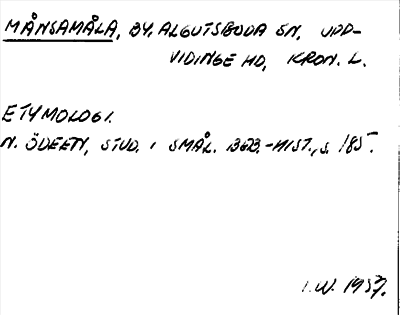 MÅNSAMÅLA, BY, ALGUTSBODA SN, UPP-
VIDINGE HD, KRON. L.
ETYMOLOGI.
N. ÖDEEN, STUD. I SMÅL. BEB.-HIST., S. 185.
I.W. 1937.